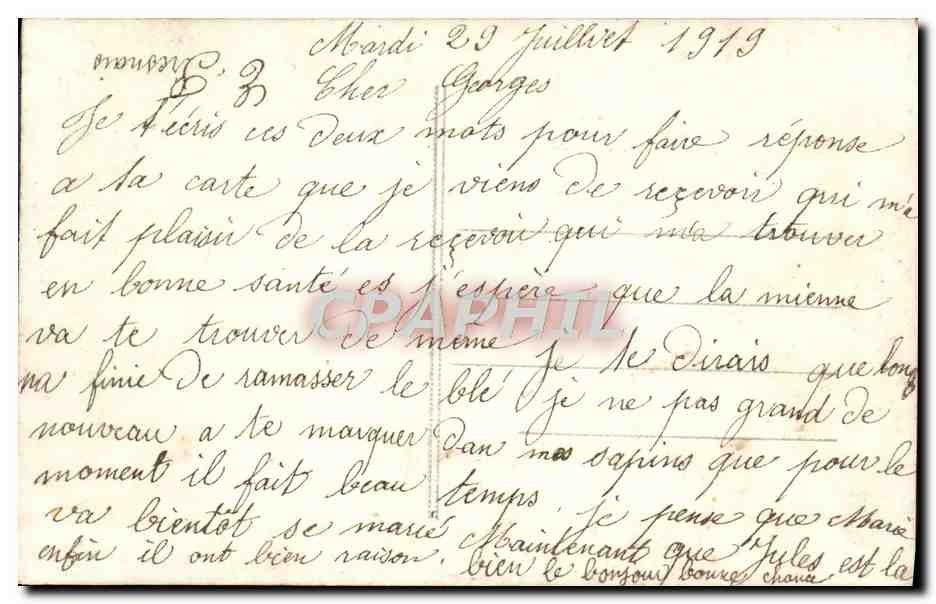 Mardi 29 Juillvet 1919
Cher Georges
Je t'écris ces deux mots pour faire réponse
a ta carte que je viens de reçevoir qui m'a
fait plaisir de la reçevoir qui m'a trouver
en bonne santé es j'espère que la mienne
va te trouver de même je te dirais que long
na finie de ramasser le blé je ne pas grand de
nouveau a te marquer dan mes sapins que pour le
moment il fait beau temps. je pense que Marie
va bientôt se marié Maintenant que Jules est la
enfin il ont bien raison. bien le bonjour bonne chance
CPAPHIL